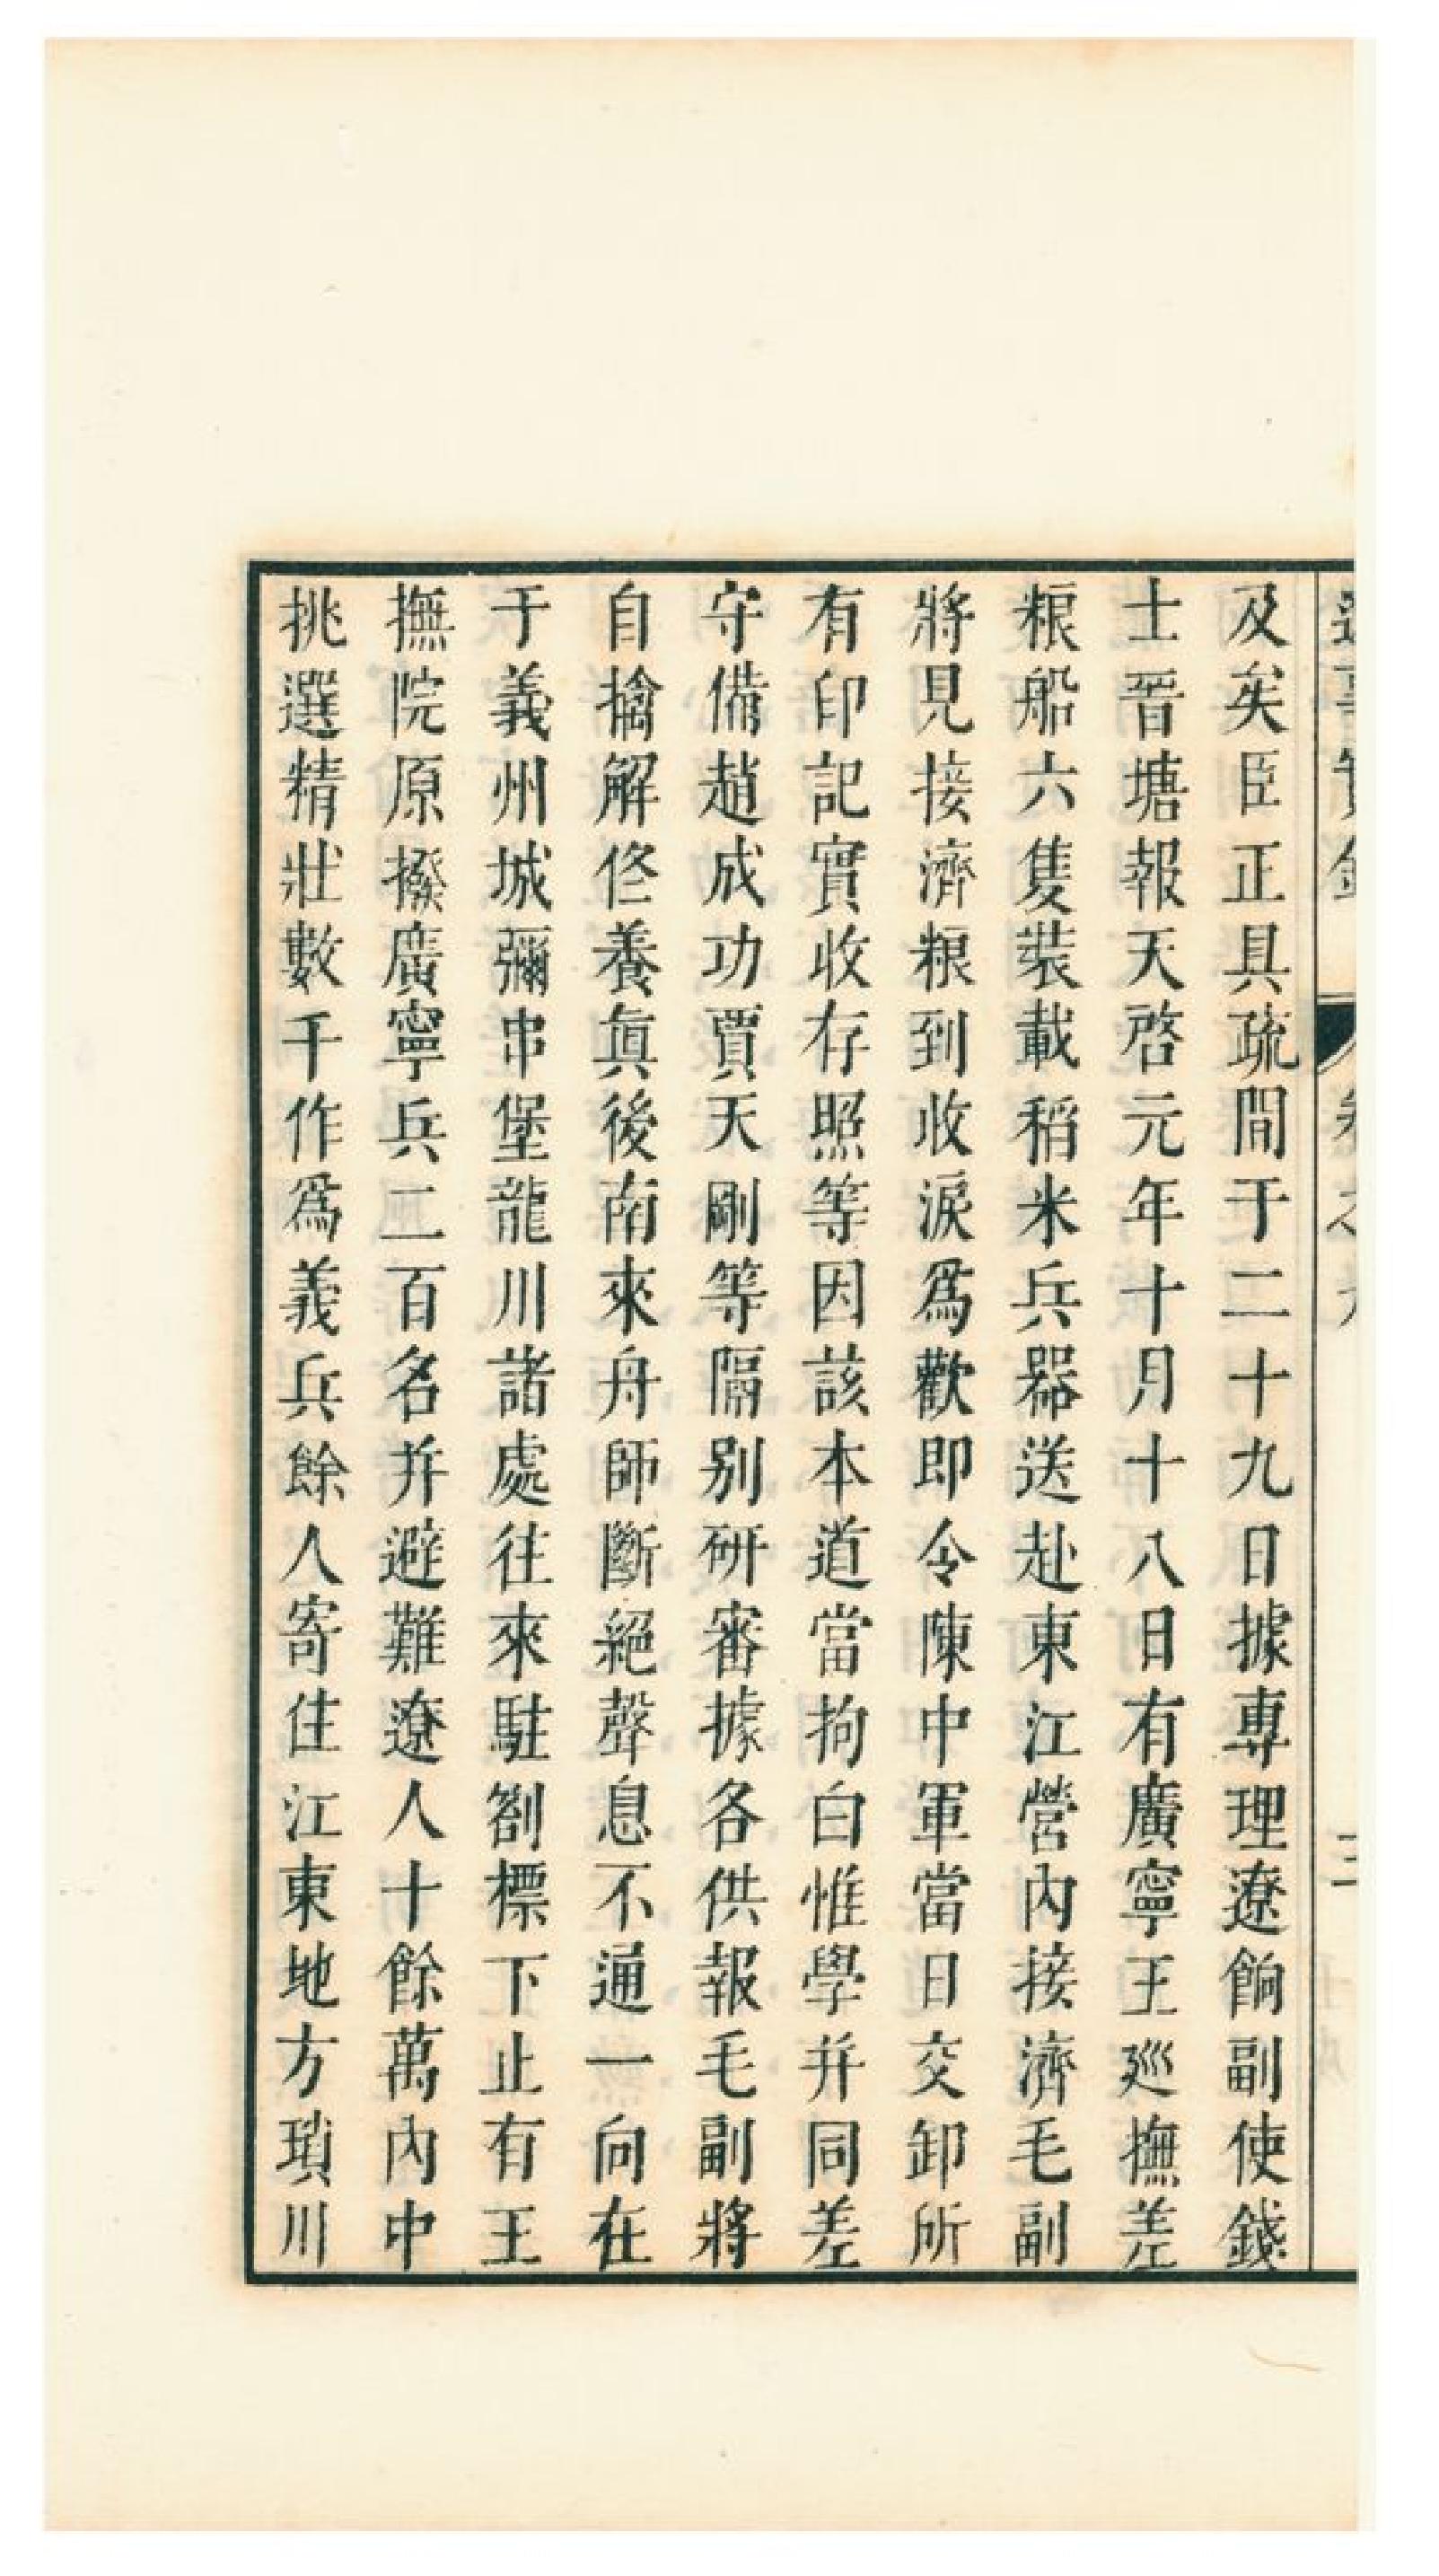 及矣臣正具疏間于二十九日據專理遼餉副使錢
士晉塘報天啓元年十月十八日有廣寧王廵撫差
粮船六隻裝載稻米兵器送赴東江營內接濟毛副
將見接濟粮到收淚爲歡即令陳中軍當日交卸所
有印記實收存照等因該本道當拘白惟學幷同差
守備趙成功賈天剛等隔别研審據各供報毛副將
自擒解佟養眞後南來舟師斷絕聲息不通一向在
于義州城彌串堡龍川諸處往來駐劄標下止有王
撫院原撥廣寧兵二百名幷避難遼人十餘萬內中
挑選精壯數千作爲義兵餘人寄住江東地方瑣川